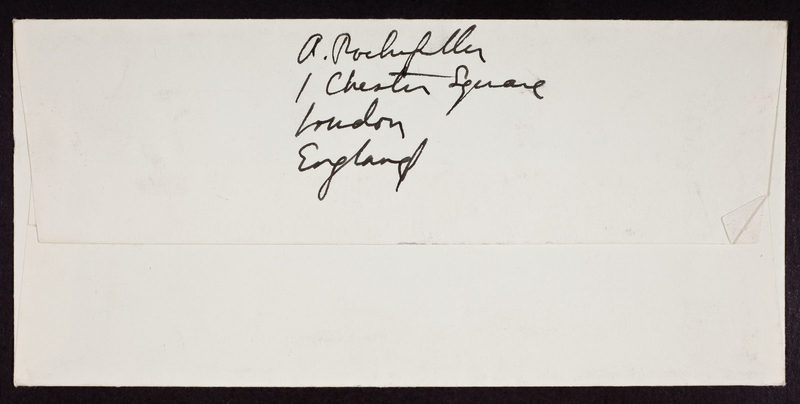 A. Rockefeller
1 Chester Square
London
England